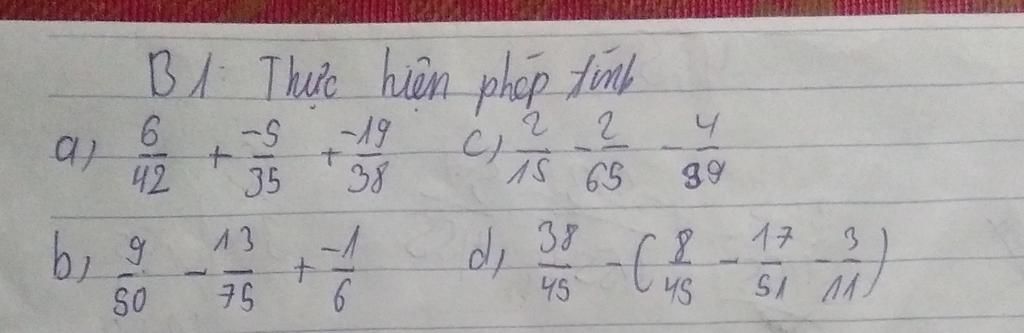 B1: Thực hiện phép tính
a, 6/42 + -5/35 + -19/38 c, 2/15 - 2/65 - 4/39
b, 9/50 - 13/75 + -1/6 d, 38/45 - (8/45 - 17/51 - 3/11)